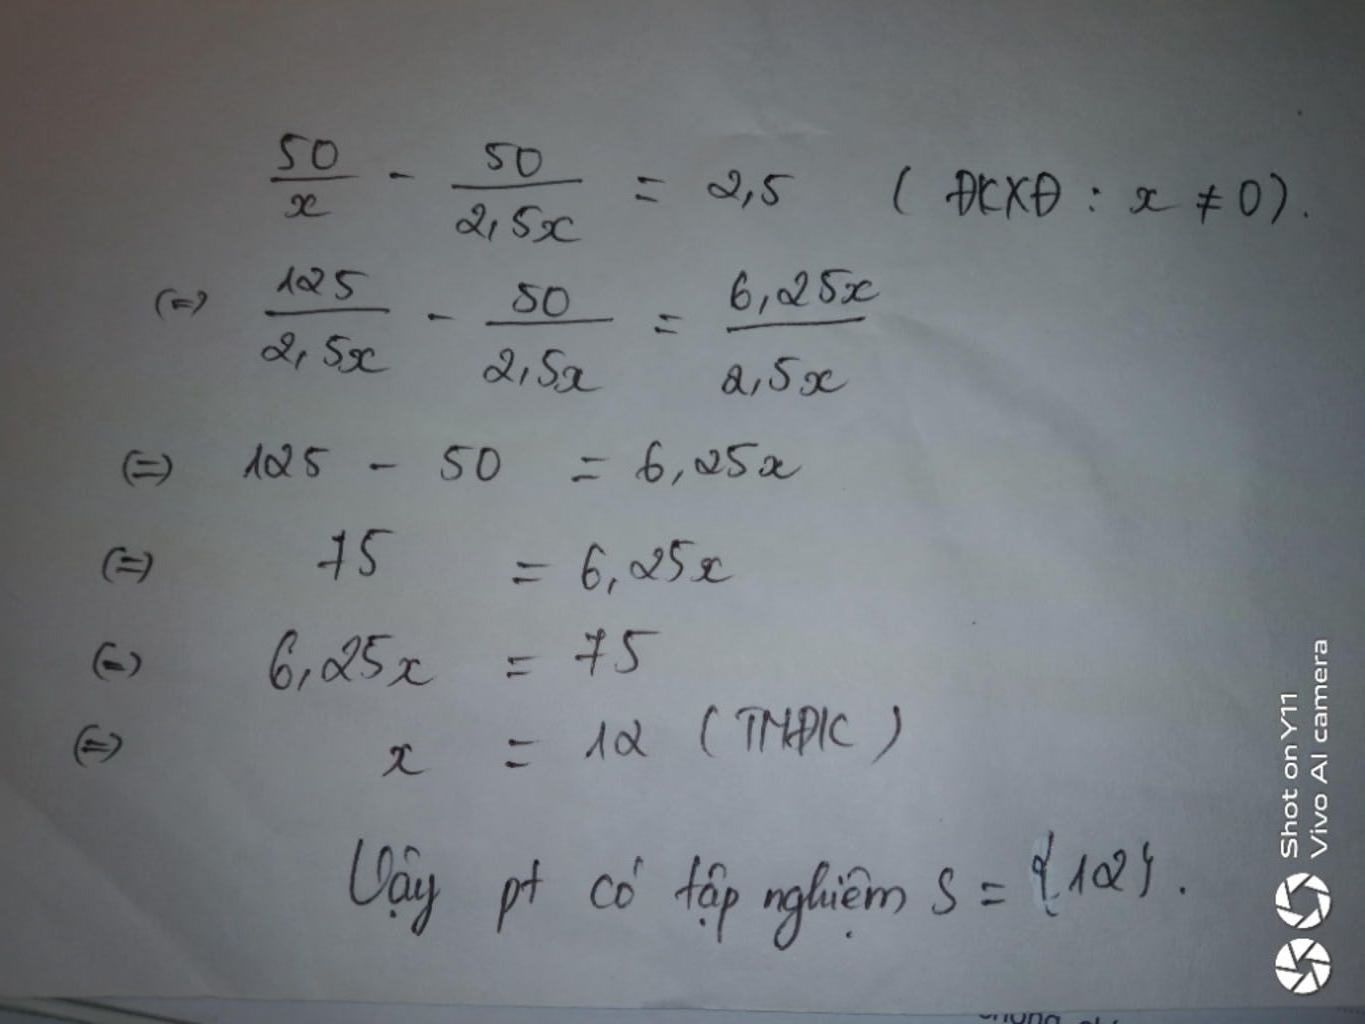 50/x - 50/2,5x = 2,5 ( ĐKXĐ : x ≠ 0).
(=) 125/2,5x - 50/2,5x = 6,25x/2,5x
(=) 125 - 50 = 6,25x
(=) 75 = 6,25x
(=) 6,25x = 75
(=) x = 12 (TMĐK)
Vậy pt có tập nghiệm S = {12}.
Shot on Y11
Vivo AI camera